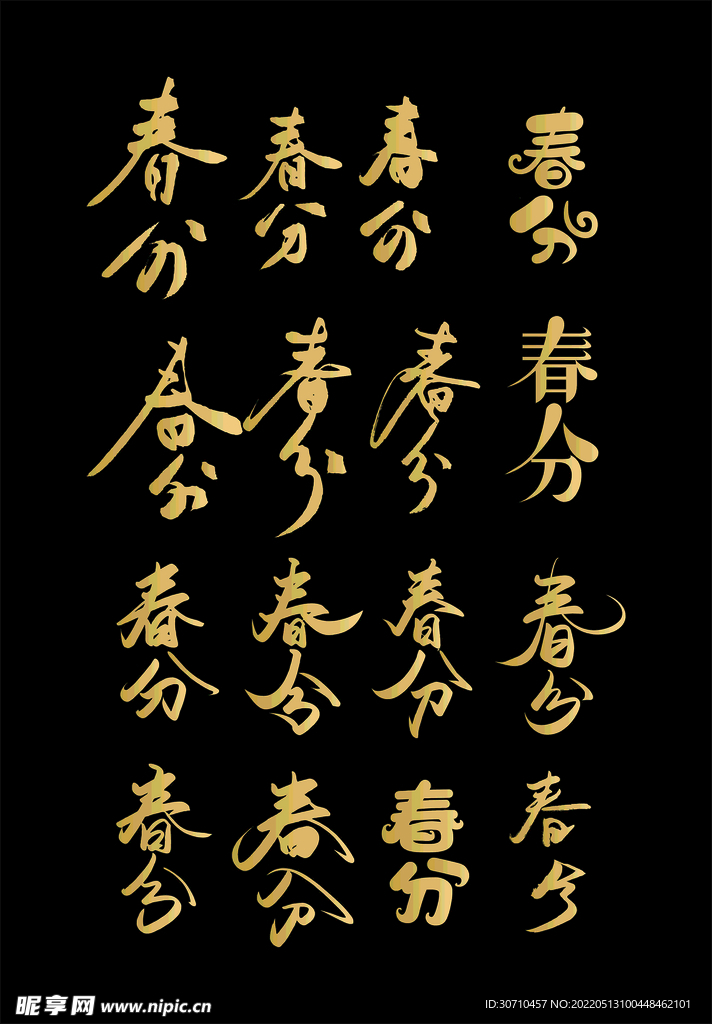 春分 春分 春分 春分
春分 春分 春分 春分
春分 春分 春分 春分
春分 春分 春分 春分
昵享网 www.nipic.cn
ID:30710457 NO:20220513100448462101